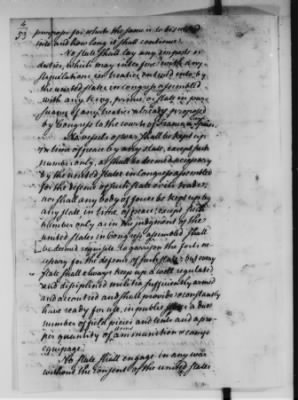 4
53
purposes for which the same is to be entered
into and how long it shall continue.
No State shall lay any imposts or
duties, which may interfere with any
stipulations in treaties entered into by
the united states in congress assembled
with any king, prince, or state in pur
suance of any treaties already proposed
by Congress to the courts of
No vessels of war shall be kept up
in time of peace by any state, except such
number only, as shall be deemed necessary
by the united states in congress assem
for the defence of such state or its trade;
nor shall any body of forces be kept up by
any state, in time of peace; except such
number only as in the judgment of the
united states in Congress assembled shall
be deemed requisite to garrison the forts ne
cessary for the defence of such state; but every
state shall always keep up a well regulated
and disciplined militia sufficiently armed
and accoutred and shall provide & constantly
have ready for use, in public a due
number of field pieces and tents and a pro
per quantity of ammunition & camp
equipage.
No state shall engage in any war
without the consent of the united states